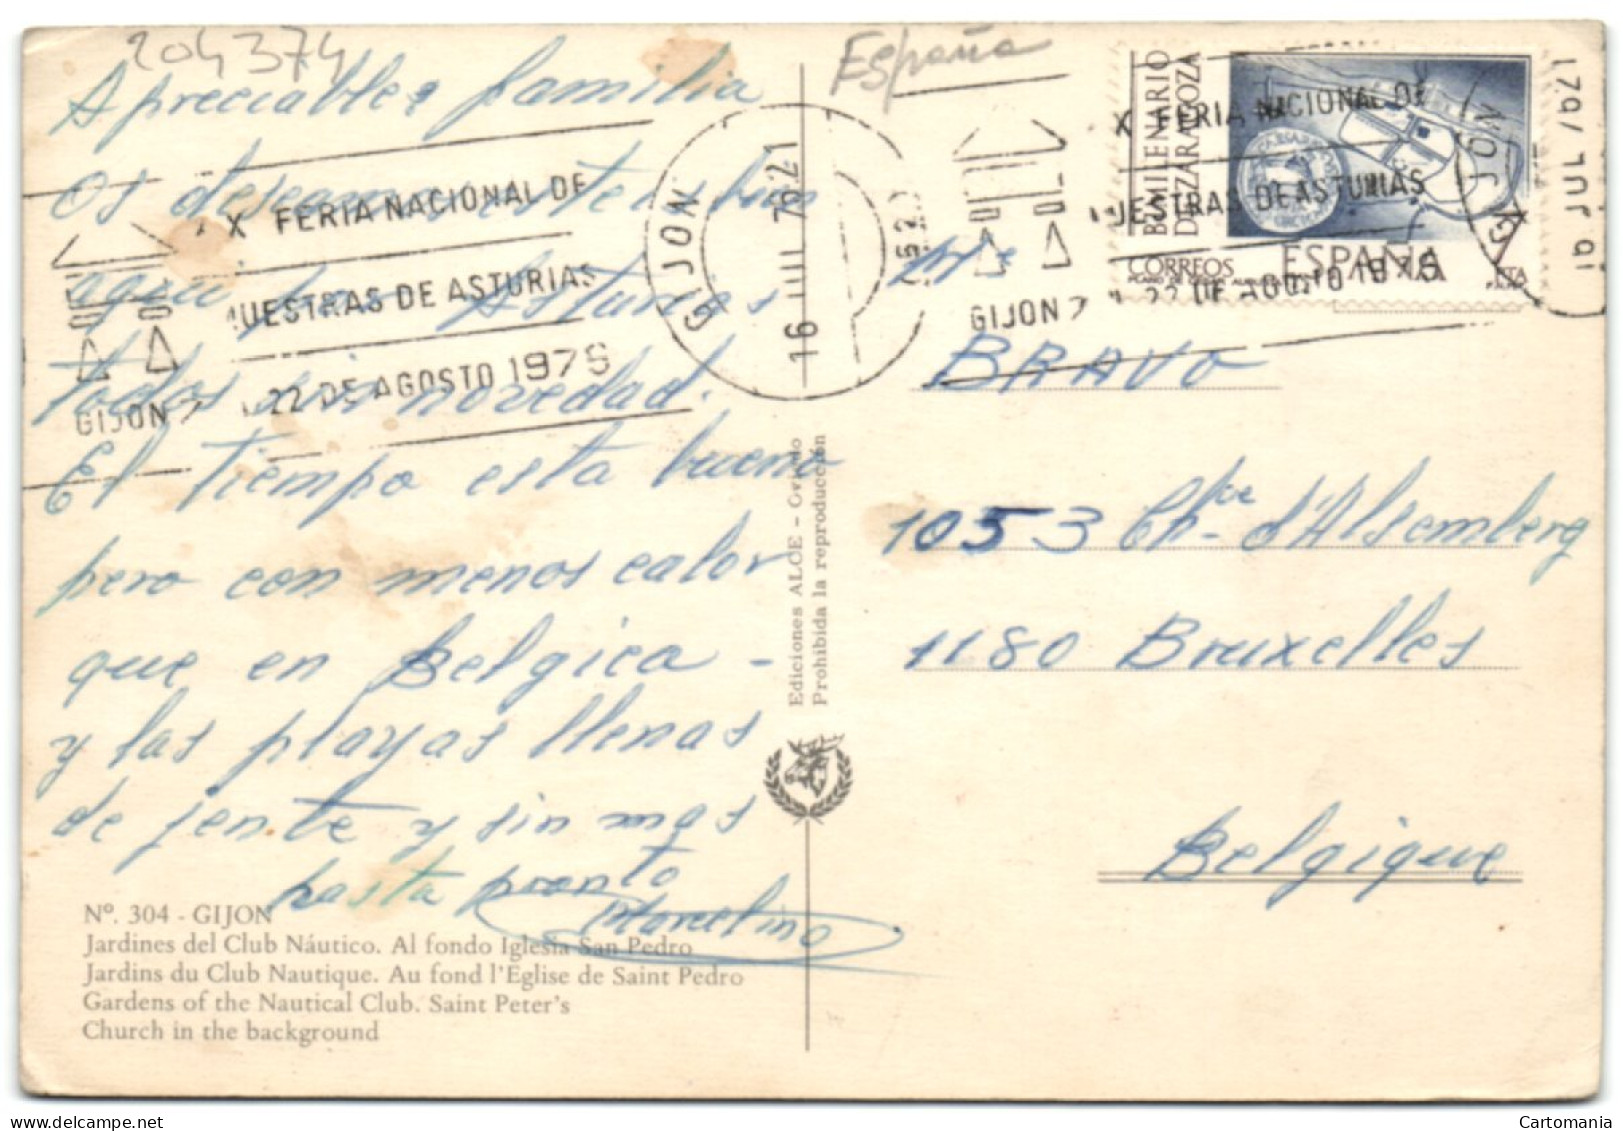 204374
España
Apreciables familia
os deseamos esteis bien
aqui por Asturias
todos sin novedad.
El tiempo esta bueno
pero con menos calor
que en Belgica -
y las playas llenas
de jente y sin mas
hasta pronto
Marcelino
X FERIA NACIONAL DE
MUESTRAS DE ASTURIAS
GIJON 7 22 DE AGOSTO 1976
GIJON
16 JUL 76 21
X FERIA NACIONAL DE
MUESTRAS DE ASTURIAS
GIJON 7 22 DE AGOSTO 1976
BIMILENARIO
DE ZARAGOZA
CORREOS
ESPAÑA
1 PTA
GIJON
Mr.
BRAVO
1053 Chée d'Alsemberg
1180 Bruxelles
Belgique
Ediciones ALCE - Oviedo
Prohibida la reproducción
Nº. 304 - GIJON
Jardines del Club Náutico. Al fondo Iglesia San Pedro
Jardins du Club Nautique. Au fond l'Eglise de Saint Pedro
Gardens of the Nautical Club. Saint Peter's
Church in the background
Cartomania